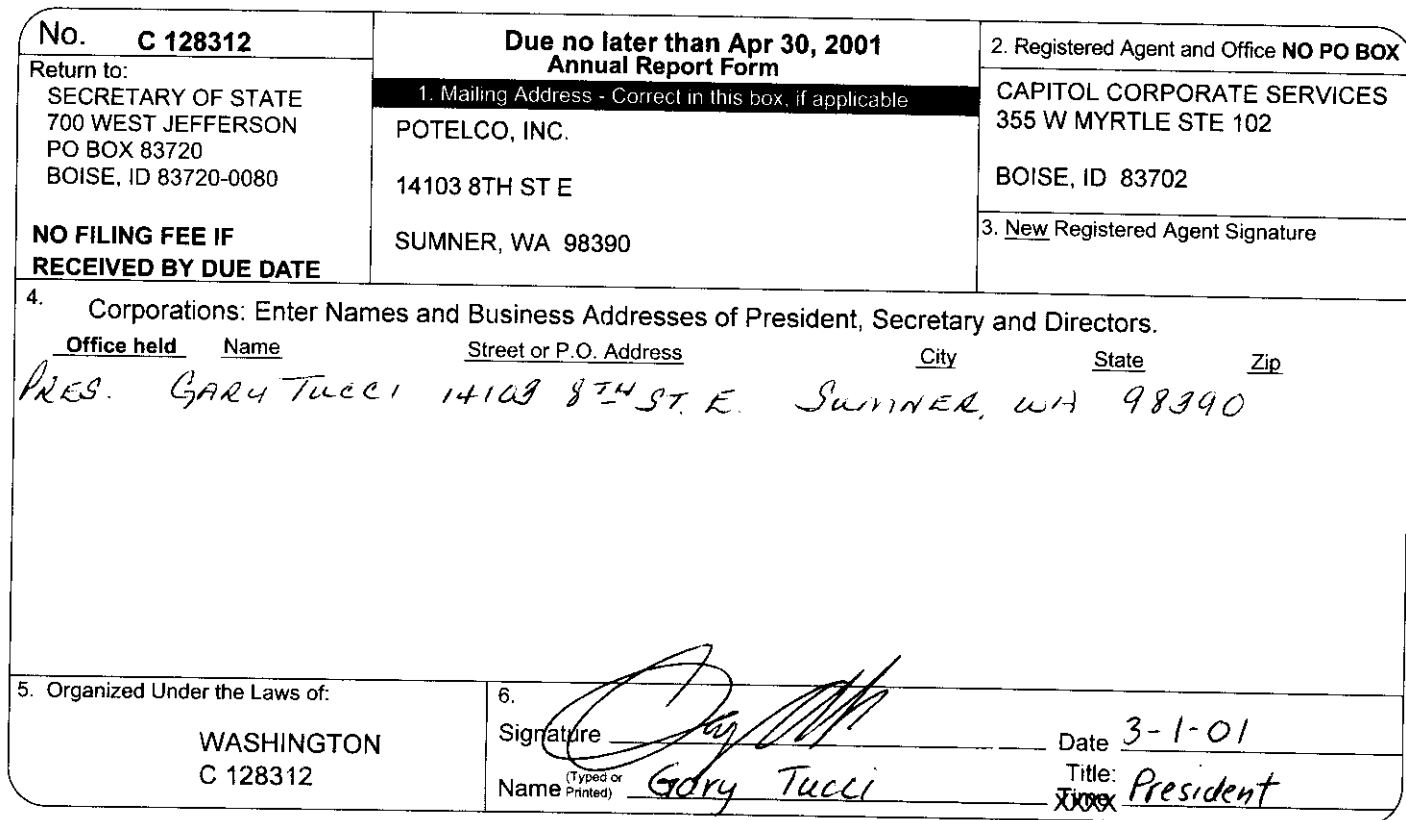 No. C 128312
Return to:
SECRETARY OF STATE
700 WEST JEFFERSON
PO BOX 83720
BOISE, ID 83720-0080
NO FILING FEE IF
RECEIVED BY DUE DATE
Due no later than Apr 30, 2001
Annual Report Form
1. Mailing Address - Correct in this box, if applicable
POTELCO, INC.
14103 8TH ST E
SUMNER, WA 98390
2. Registered Agent and Office NO PO BOX
CAPITOL CORPORATE SERVICES
355 W MYRTLE STE 102
BOISE, ID 83702
3. New Registered Agent Signature
4. Corporations: Enter Names and Business Addresses of President, Secretary and Directors.
Office held Name Street or P.O. Address City State Zip
PRES. GARY TUCCI 14103 8TH ST. E. SUMNER, WA 98390
5. Organized Under the Laws of:
WASHINGTON
C 128312
6.
Signature Date 3-1-01
Name (Typed or Printed) Gary Tucci Title: President